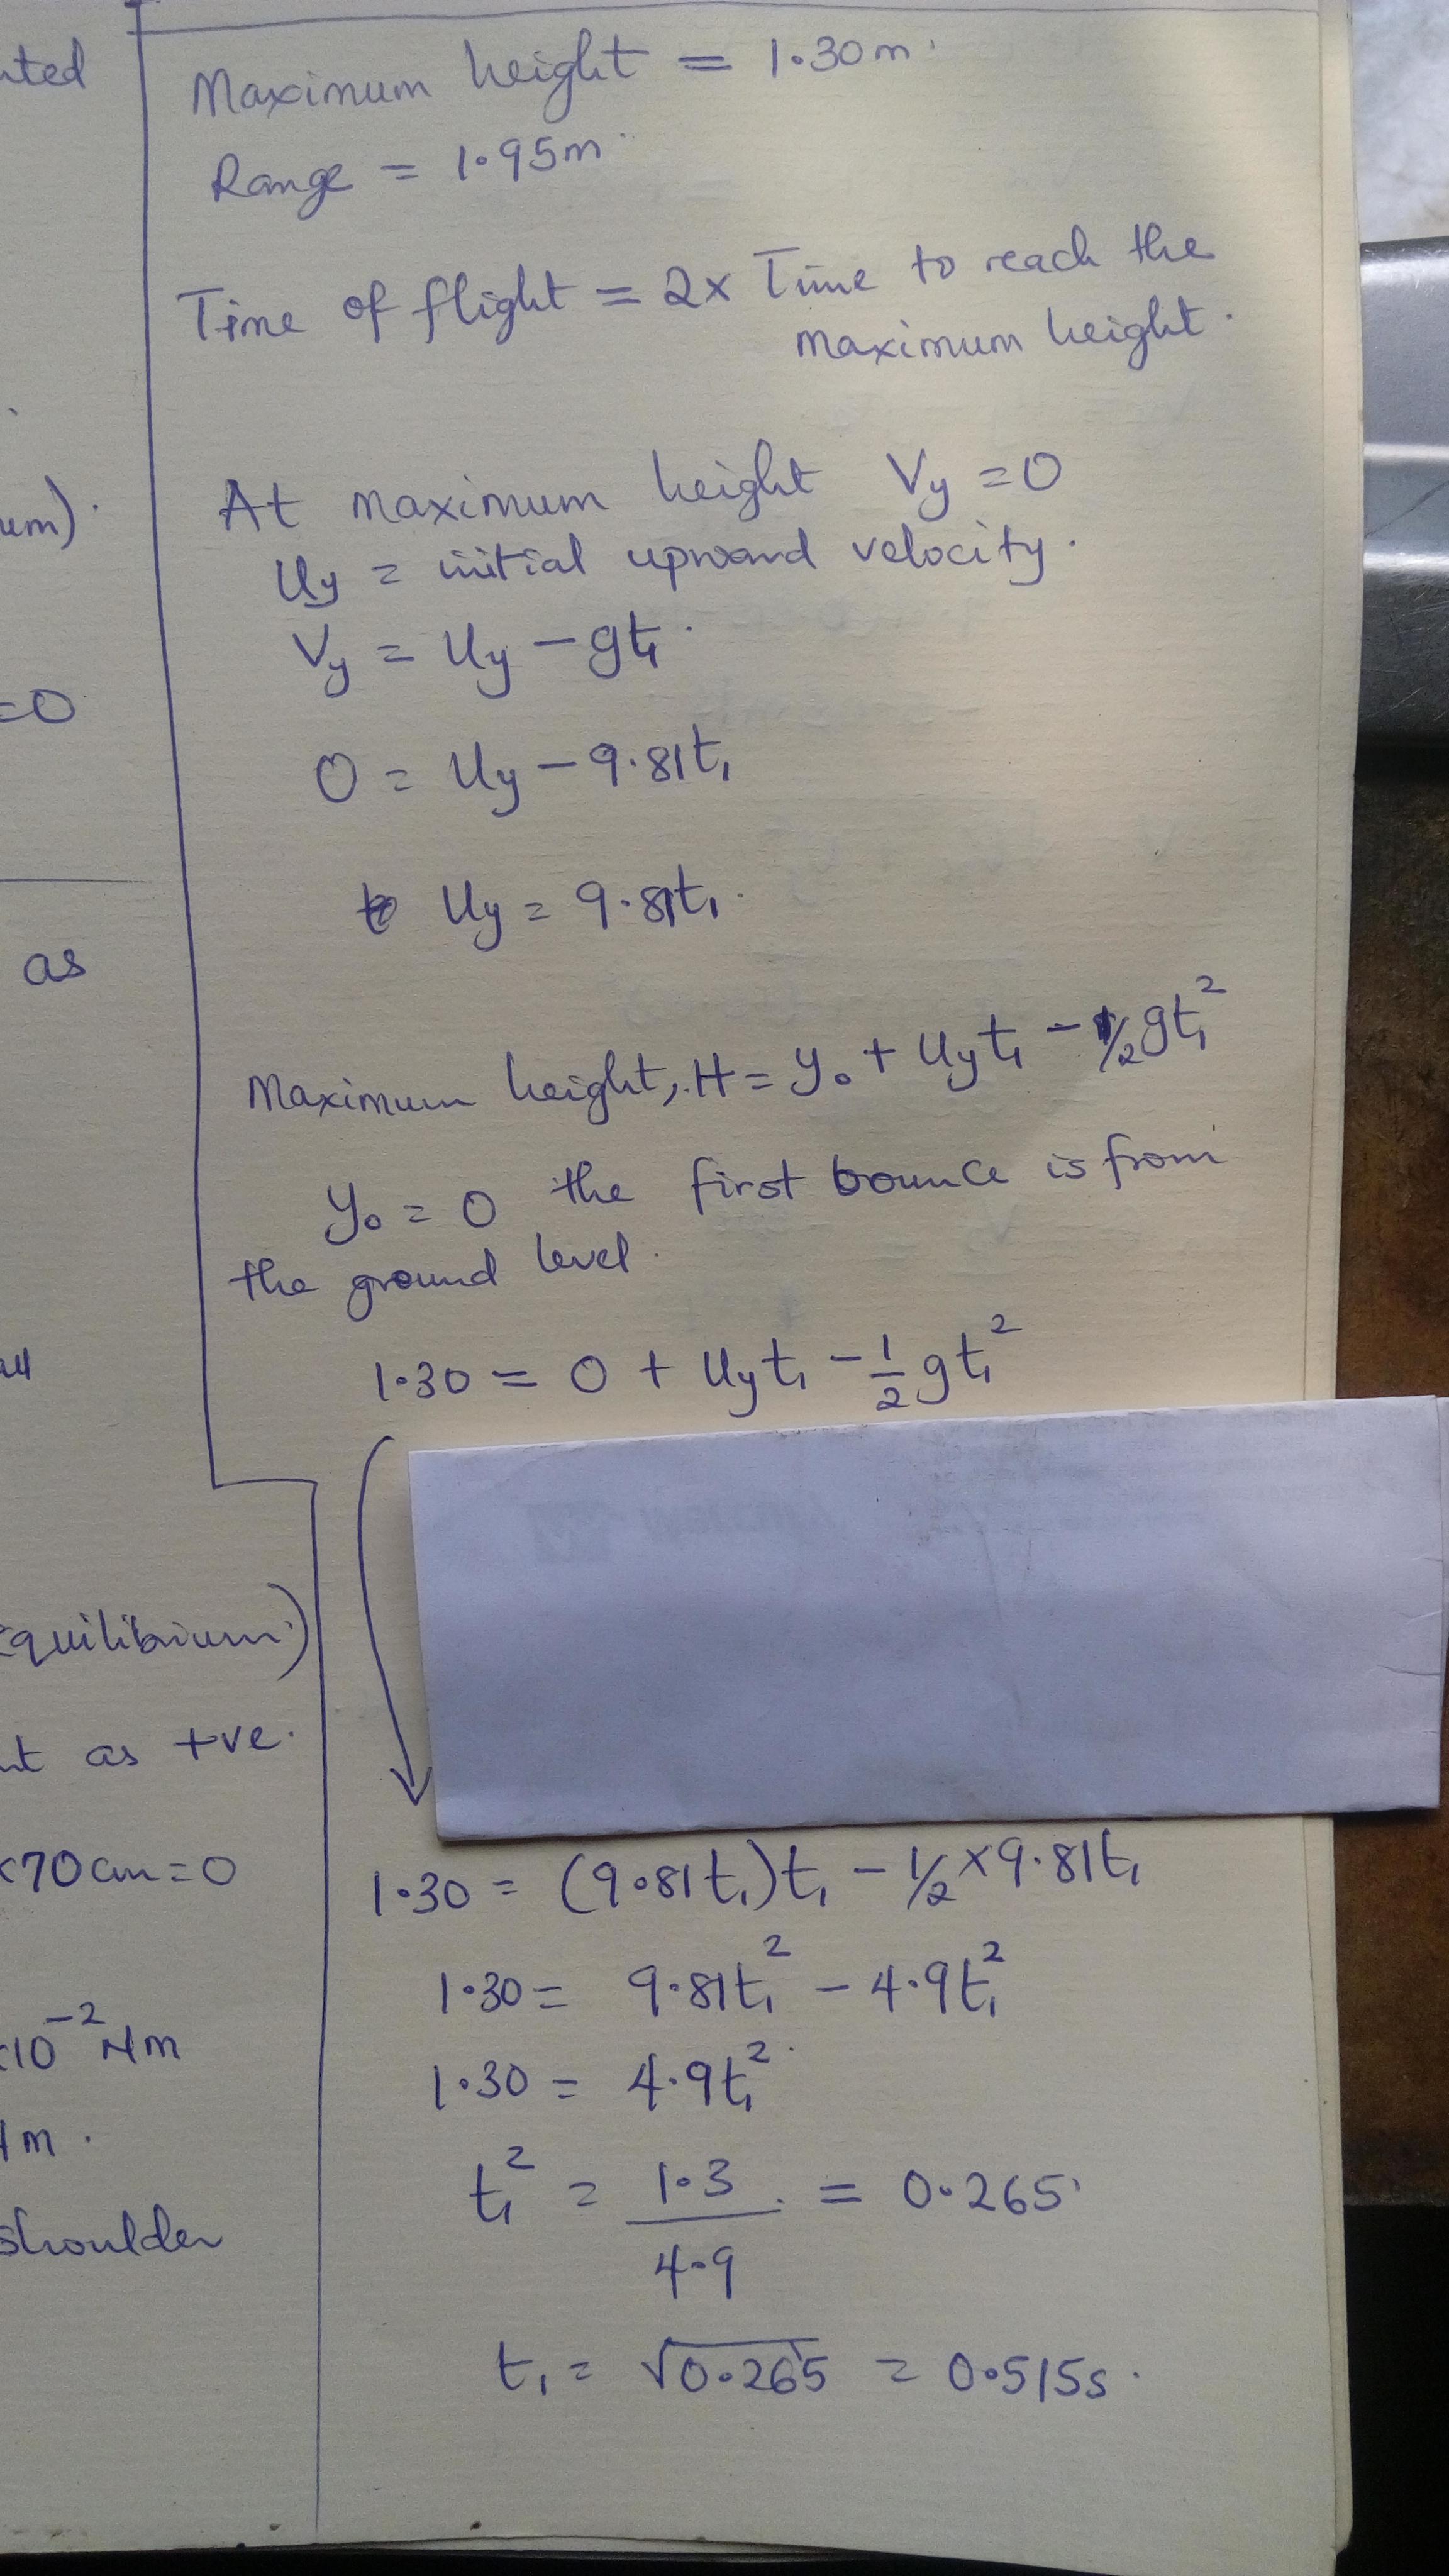 nted
um).
=0
as
Equilibrium)
nt as +ve.
×70cm=0
×10⁻² Nm
m.
shoulder
Maximum height = 1.30m.
Range = 1.95m.
Time of flight = 2x Time to reach the
maximum height.
At maximum height Vy = 0
Uy = initial upward velocity.
Vy = Uy - gt₁.
0 = Uy - 9.81t₁
Uy = 9.81t₁.
Maximum height, H = y₀ + Uyt₁ - 1/2gt₁²
y₀ = 0 the first bounce is from
the ground level.
1.30 = 0 + Uyt₁ - 1/2 gt₁²
1.30 = (9.81t₁)t₁ - 1/2 x 9.81t₁
1.30 = 9.81t₁² - 4.9t₁²
1.30 = 4.9t₁².
t₁² = 1.3/4.9 = 0.265
t₁ = √0.265 = 0.515s.